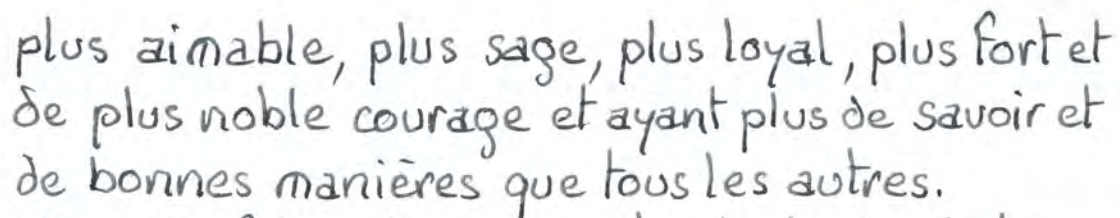 plus aimable, plus sage, plus loyal, plus fort et
de plus noble courage et ayant plus de savoir et
de bonnes manières que tous les autres.